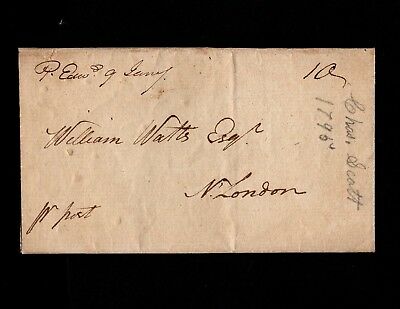 P. Edwd. 9 Jany.
10
William Watts Esqr.
N. London
pr post
Chas. Scott
1795